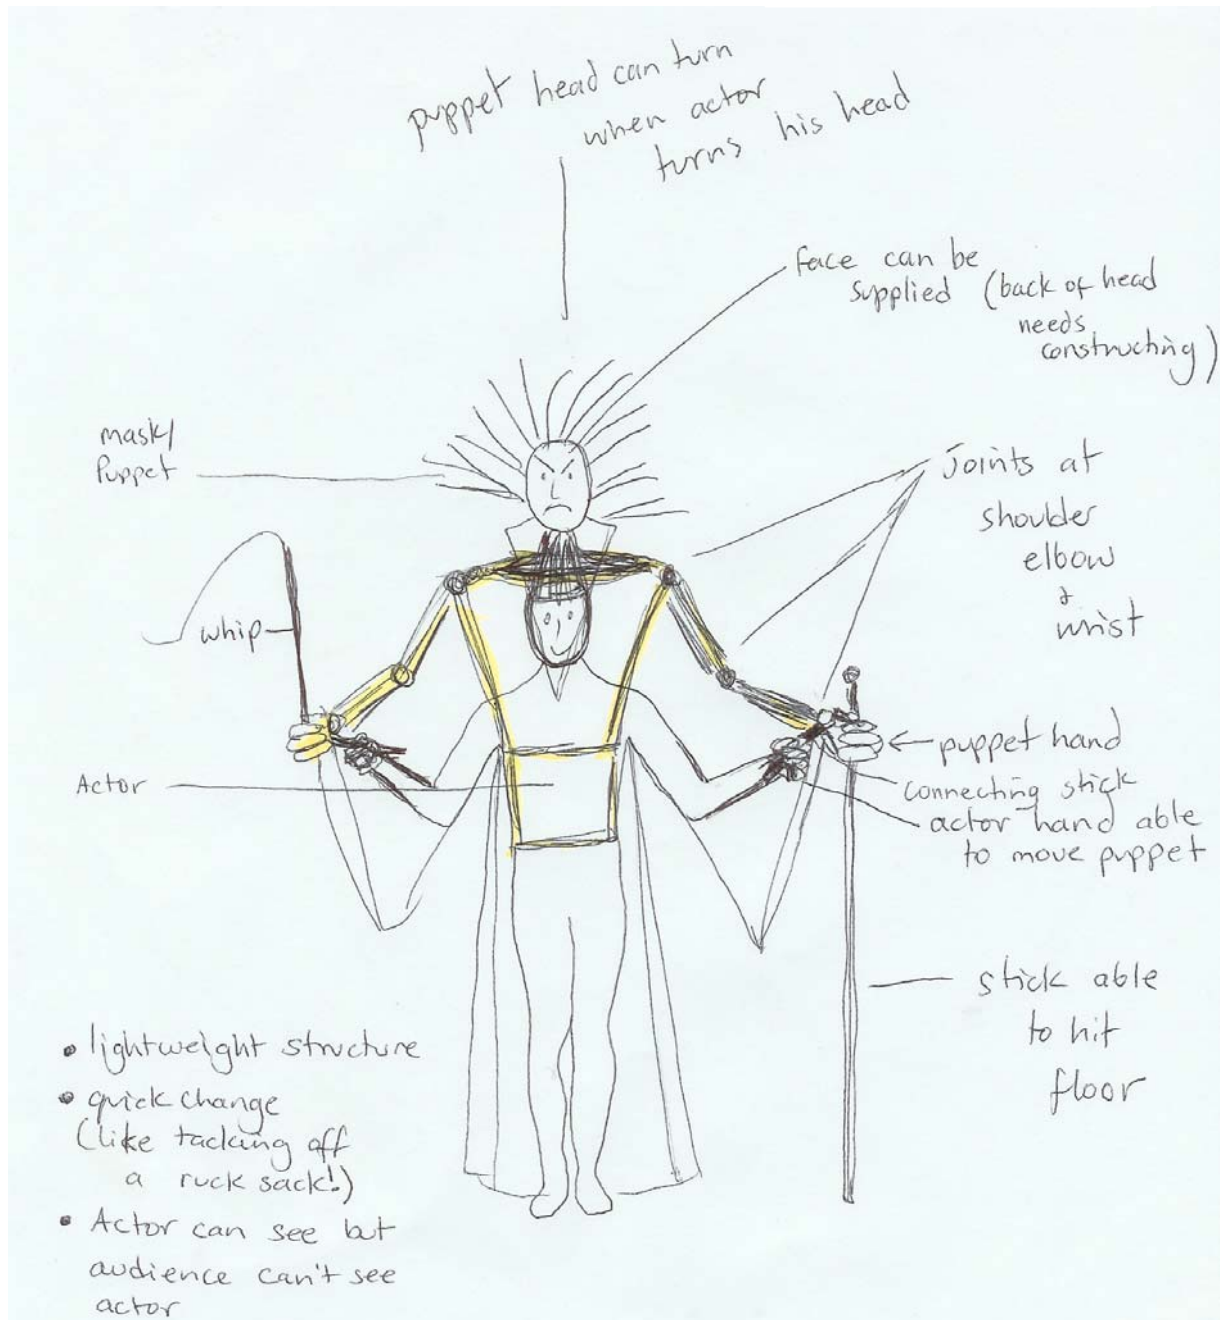 puppet head can turn
when actor
turns his head
face can be
supplied (back of head
needs
constructing)
mask/
Puppet
Joints at
shoulder
elbow
&
wrist
whip
puppet hand
Actor
connecting stick
actor hand able
to move puppet
stick able
to hit
floor
• lightweight structure
• quick change
(like tacking off
a ruck sack!)
• Actor can see but
audience can't see
actor